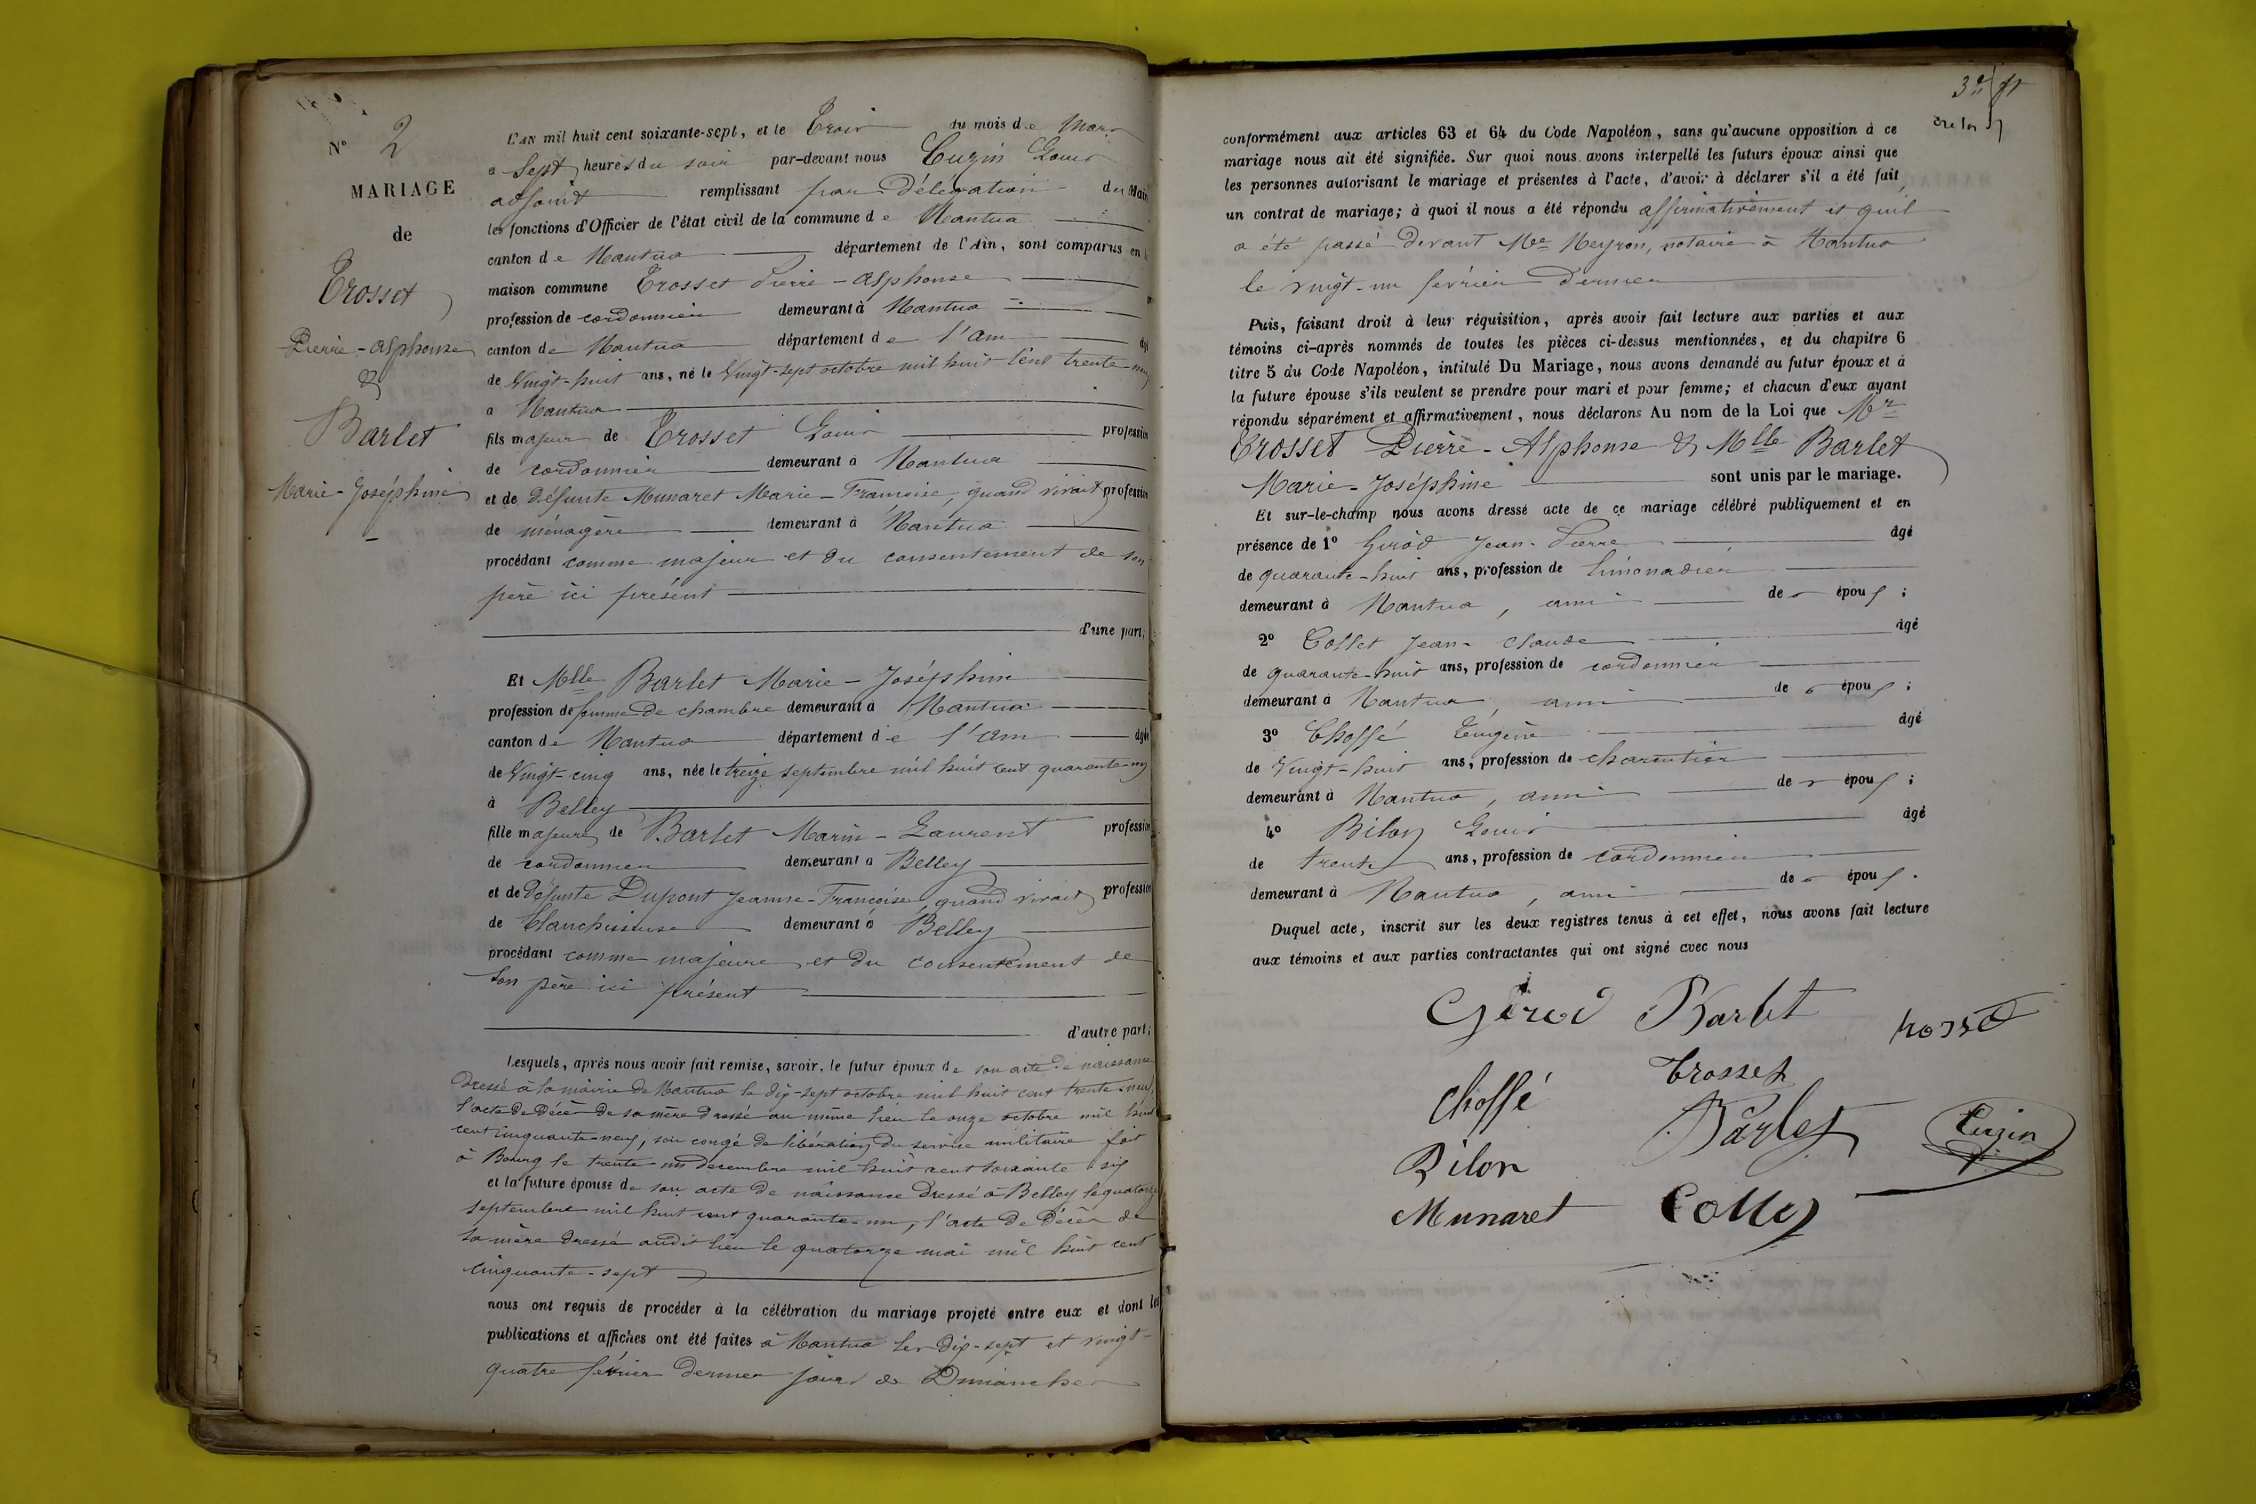 N° 2
MARIAGE
de
Trosset
Pierre-Alphonse
&
Barlet
Marie-Joséphine
L'AN mil huit cent soixante-sept, et le Trois du mois de Mars
a Sept heures du soir par-devant nous Cuzin Louis
adjoint remplissant par délégation du Maire
les fonctions d'Officier de l'état civil de la commune de Nantua
canton de Nantua département de l'Ain, sont comparus en la
maison commune Trosset Pierre-Alphonse
profession de cordonnier demeurant à Nantua
canton de Nantua département de l'Ain âgé
de Vingt-huit ans, né le Vingt-sept octobre mil huit cent trente-neuf
a Nantua
fils majeur de Trosset Louis profession
de cordonnier demeurant à Nantua
et de défunte Munaret Marie-Françoise, quand vivait profession
de ménagère demeurant à Nantua
procédant comme majeur et du consentement de son
père ici présent
d'une part;
Et Mlle Barlet Marie-Joséphine
profession de femme de chambre demeurant à Nantua
canton de Nantua département de l'Ain âgée
de Vingt-cinq ans, née le treize septembre mil huit cent quarante-un
à Belley
fille majeure de Barlet Marin-Laurent profession
de cordonnier demeurant à Belley
et de défunte Dupont Jeanne-Françoise quand vivait profession
de blanchisseuse demeurant à Belley
procédant comme majeure et du consentement de
son père ici présent
d'autre part;
Lesquels, après nous avoir fait remise, savoir, le futur époux de son acte de naissance
dressé à la mairie de Nantua le dix-sept octobre mil huit cent trente-neuf,
l'acte de décès de sa mère dressé au même lieu le onze octobre mil huit
cent cinquante-neuf, son congé de libération du service militaire fait
à Bourg le trente-un décembre mil huit cent soixante six
et la future épouse de son acte de naissance dressé à Belley le quatorze
septembre mil huit cent quarante-un, l'acte de décès de
sa mère dressé audit lieu le quatorze mai mil huit cent
cinquante-sept
nous ont requis de procéder à la célébration du mariage projeté entre eux et dont les
publications et affiches ont été faites à Nantua les dix-sept et vingt-
quatre février dernier jours de Dimanches
conformément aux articles 63 et 64 du Code Napoléon, sans qu'aucune opposition à ce
mariage nous ait été signifiée. Sur quoi nous avons interpellé les futurs époux ainsi que
les personnes autorisant le mariage et présentes à l'acte, d'avoir à déclarer s'il a été fait
un contrat de mariage; à quoi il nous a été répondu affirmativement et qu'il
a été passé devant Me Neyron, notaire à Nantua
le vingt-un février dernier
Puis, faisant droit à leur réquisition, après avoir fait lecture aux parties et aux
témoins ci-après nommés de toutes les pièces ci-dessus mentionnées, et du chapitre 6
titre 5 du Code Napoléon, intitulé Du Mariage, nous avons demandé au futur époux et à
la future épouse s'ils veulent se prendre pour mari et pour femme; et chacun d'eux ayant
répondu séparément et affirmativement, nous déclarons Au nom de la Loi que Mr
Trosset Pierre-Alphonse & Mlle Barlet
Marie-Joséphine sont unis par le mariage.
Et sur-le-champ nous avons dressé acte de ce mariage célébré publiquement et en
présence de 1° Girod Jean-Pierre âgé
de quarante-huit ans, profession de limonadier
demeurant à Nantua, ami des époux;
2° Collet Jean-Claude âgé
de quarante-huit ans, profession de cordonnier
demeurant à Nantua, ami des époux;
3° Choffé Eugène âgé
de Vingt-huit ans, profession de charcutier
demeurant à Nantua, ami des époux;
4° Bilon Louis âgé
de trente ans, profession de cordonnier
demeurant à Nantua, ami des époux.
Duquel acte, inscrit sur les deux registres tenus à cet effet, nous avons fait lecture
aux témoins et aux parties contractantes qui ont signé avec nous
Girod Barlet
Trosset
Choffé
Barlet Cuzin
Bilon
Munaret Collet